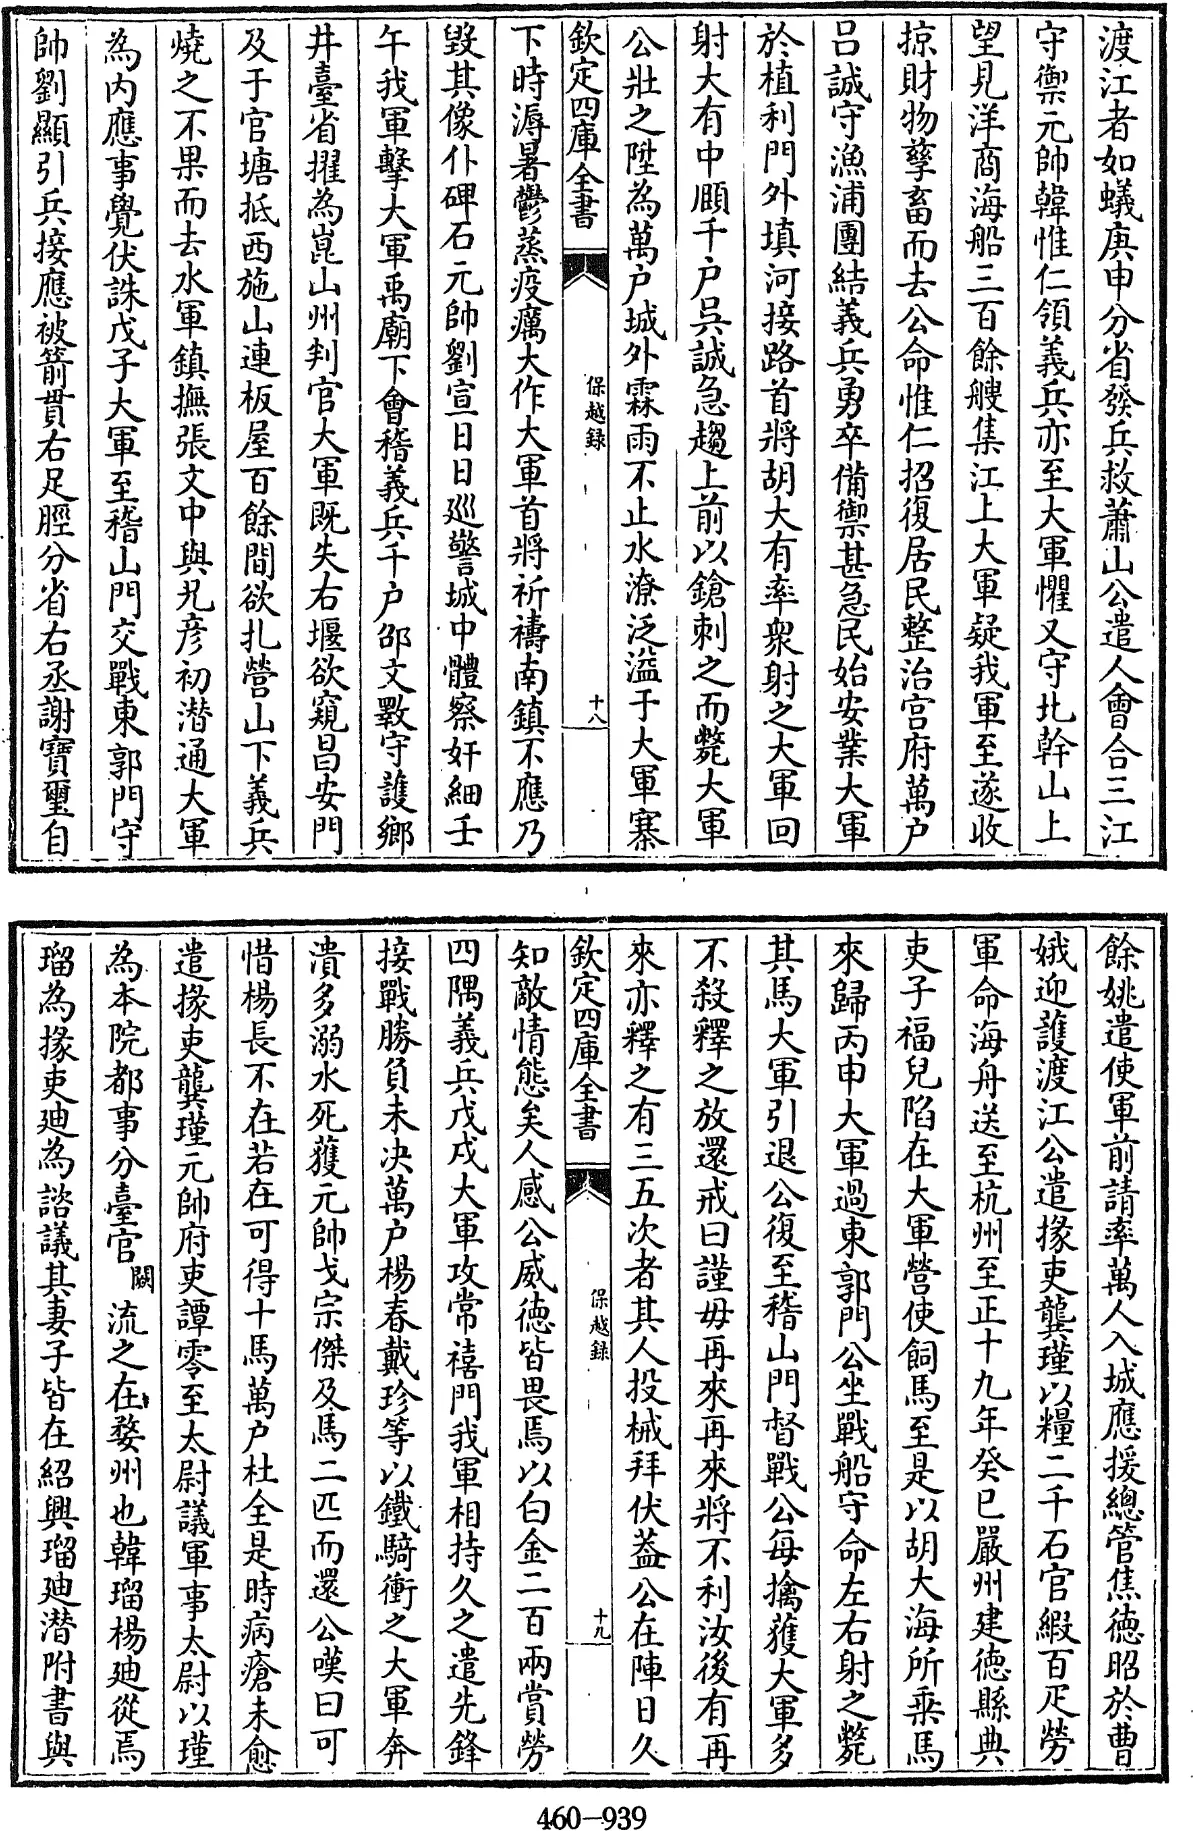 渡江者如蟻庚申分省發兵救蕭山公遣人會合三江
守禦元帥韓惟仁領義兵亦至大軍懼又守北幹山上
望見洋商海船三百餘艘集江上大軍疑我軍至遂收
掠財物孳畜而去公命惟仁招復居民整治宫府萬户
吕誠守漁浦團結義兵勇卒備禦甚急民始安業大軍
於植利門外填河接路首將胡大有率衆射之大軍回
射大有中頤千户吳誠急趨上前以鎗刺之而斃大軍
公壯之陞為萬户城外霖雨不止水潦泛溢于大軍寨
欽定四庫全書
保越録
十八
下時溽暑鬱蒸疫癘大作大軍首將祈禱南鎮不應乃
毀其像仆碑石元帥劉宣日日廵警城中體察奸細壬
午我軍擊大軍禹廟下會稽義兵千户邵文斅守護鄉
井臺省擢為崑山州判官大軍既失右堰欲窺昌安門
及于官塘抵西施山連板屋百餘間欲扎營山下義兵
燒之不果而去水軍鎮撫張文中與尤彦初潜通大軍
為内應事覺伏誅戊子大軍至稽山門交戰東郭門守
帥劉顯引兵接應被箭貫右足脛分省右丞謝寶璽自
餘姚遣使軍前請率萬人入城應援總管焦德昭於曹
娥迎護渡江公遣掾吏龔瑾以糧二千石官緞百疋勞
軍命海舟送至杭州至正十九年癸巳嚴州建德縣典
吏子福兒陷在大軍營使飼馬至是以胡大海所乘馬
來歸丙申大軍過東郭門公坐戰船守命左右射之斃
其馬大軍引退公復至稽山門督戰公每擒獲大軍多
不殺釋之放還戒曰謹毋再來再來將不利汝後有再
來亦釋之有三五次者其人投械拜伏葢公在陣日久
欽定四庫全書
保越録
十九
知敵情態矣人感公威德皆畏焉以白金二百兩賞勞
四隅義兵戊戌大軍攻常禧門我軍相持久之遣先鋒
接戰勝負未决萬户楊春戴珍等以鐵騎衝之大軍奔
潰多溺水死獲元帥戈宗傑及馬二匹而還公嘆曰可
惜楊長不在若在可得十馬萬户杜全是時病瘡未愈
遣掾吏龔瑾元帥府吏譚零至太尉議軍事太尉以瑾
為本院都事分臺官闕流之在婺州也韓瑠楊廸從焉
瑠為掾吏廸為諮議其妻子皆在紹興瑠廸潜附書與
460-939